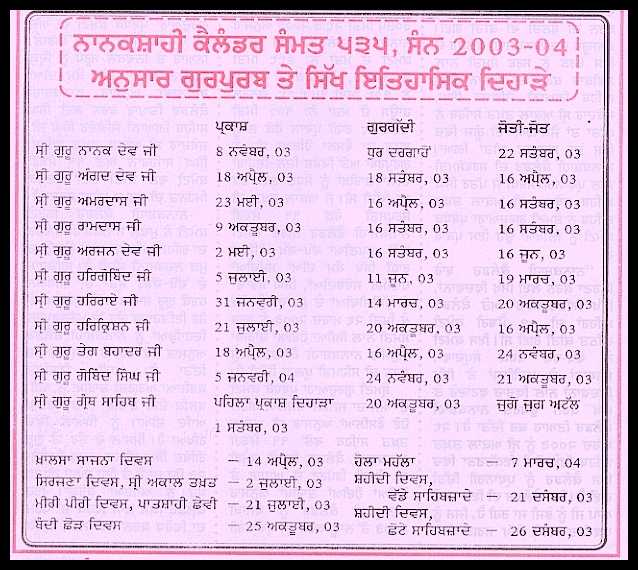 ਨਾਨਕਸ਼ਾਹੀ ਕੈਲੰਡਰ ਸੰਮਤ ੫੩੫, ਸੰਨ 2003-04
ਅਨੁਸਾਰ ਗੁਰਪੁਰਬ ਤੇ ਸਿੱਖ ਇਤਿਹਾਸਿਕ ਦਿਹਾੜੇ
ਪ੍ਰਕਾਸ਼ ਗੁਰਗੱਦੀ ਜੋਤੀ-ਜੋਤ
ਸ੍ਰੀ ਗੁਰੂ ਨਾਨਕ ਦੇਵ ਜੀ 8 ਨਵੰਬਰ, 03 ਧੁਰ ਦਰਗਾਹੋਂ 22 ਸਤੰਬਰ, 03
ਸ੍ਰੀ ਗੁਰੂ ਅੰਗਦ ਦੇਵ ਜੀ 18 ਅਪ੍ਰੈਲ, 03 18 ਸਤੰਬਰ, 03 16 ਅਪ੍ਰੈਲ, 03
ਸ੍ਰੀ ਗੁਰੂ ਅਮਰਦਾਸ ਜੀ 23 ਮਈ, 03 16 ਅਪ੍ਰੈਲ, 03 16 ਸਤੰਬਰ, 03
ਸ੍ਰੀ ਗੁਰੂ ਰਾਮਦਾਸ ਜੀ 9 ਅਕਤੂਬਰ, 03 16 ਸਤੰਬਰ, 03 16 ਸਤੰਬਰ, 03
ਸ੍ਰੀ ਗੁਰੂ ਅਰਜਨ ਦੇਵ ਜੀ 2 ਮਈ, 03 16 ਸਤੰਬਰ, 03 16 ਜੂਨ, 03
ਸ੍ਰੀ ਗੁਰੂ ਹਰਿਗੋਬਿੰਦ ਜੀ 5 ਜੁਲਾਈ, 03 11 ਜੂਨ, 03 19 ਮਾਰਚ, 03
ਸ੍ਰੀ ਗੁਰੂ ਹਰਿਰਾਏ ਜੀ 31 ਜਨਵਰੀ, 03 14 ਮਾਰਚ, 03 20 ਅਕਤੂਬਰ, 03
ਸ੍ਰੀ ਗੁਰੂ ਹਰਿਕ੍ਰਿਸ਼ਨ ਜੀ 21 ਜੁਲਾਈ, 03 20 ਅਕਤੂਬਰ, 03 16 ਅਪ੍ਰੈਲ, 03
ਸ੍ਰੀ ਗੁਰੂ ਤੇਗ ਬਹਾਦਰ ਜੀ 18 ਅਪ੍ਰੈਲ, 03 16 ਅਪ੍ਰੈਲ, 03 24 ਨਵੰਬਰ, 03
ਸ੍ਰੀ ਗੁਰੂ ਗੋਬਿੰਦ ਸਿੰਘ ਜੀ 5 ਜਨਵਰੀ, 04 24 ਨਵੰਬਰ, 03 21 ਅਕਤੂਬਰ, 03
ਸ੍ਰੀ ਗੁਰੂ ਗ੍ਰੰਥ ਸਾਹਿਬ ਜੀ ਪਹਿਲਾ ਪ੍ਰਕਾਸ਼ ਦਿਹਾੜਾ 20 ਅਕਤੂਬਰ, 03 ਜੁਗੋ ਜੁਗ ਅਟੱਲ
1 ਸਤੰਬਰ, 03
ਖ਼ਾਲਸਾ ਸਾਜਨਾ ਦਿਵਸ – 14 ਅਪ੍ਰੈਲ, 03 ਹੋਲਾ ਮਹੱਲਾ – 7 ਮਾਰਚ, 04
ਸਿਰਜਣਾ ਦਿਵਸ, ਸ੍ਰੀ ਅਕਾਲ ਤਖ਼ਤ – 2 ਜੁਲਾਈ, 03 ਸ਼ਹੀਦੀ ਦਿਵਸ,
ਮੀਰੀ ਪੀਰੀ ਦਿਵਸ, ਪਾਤਸ਼ਾਹੀ ਛੇਵੀਂ – 21 ਜੁਲਾਈ, 03 ਵੱਡੇ ਸਾਹਿਬਜ਼ਾਦੇ – 21 ਦਸੰਬਰ, 03
ਬੰਦੀ ਛੋੜ ਦਿਵਸ – 25 ਅਕਤੂਬਰ, 03 ਸ਼ਹੀਦੀ ਦਿਵਸ,
ਛੋਟੇ ਸਾਹਿਬਜ਼ਾਦੇ – 26 ਦਸੰਬਰ, 03